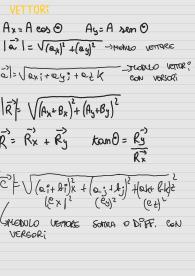 VETTORI
Ax = A cos Θ Ay = A sem Θ
|a⃗| = √(ax)² + (ay)² → MODULO VETTORE
|a⃗| = √axi + ayj + az k → MODULO VETTORI CON VERSORI
|R⃗| = √(Ax+Bx)² + (Ay+By)²
R⃗ = R⃗x + R⃗y tanΘ = R⃗y / R⃗x
|c⃗| = √(ai+bi)²x + (aj+bj)² + (ak+bk)²
(cx)² (cy)² (cz)²
MODULO VETTORE SOMMA O DIFF. CON VERSORI